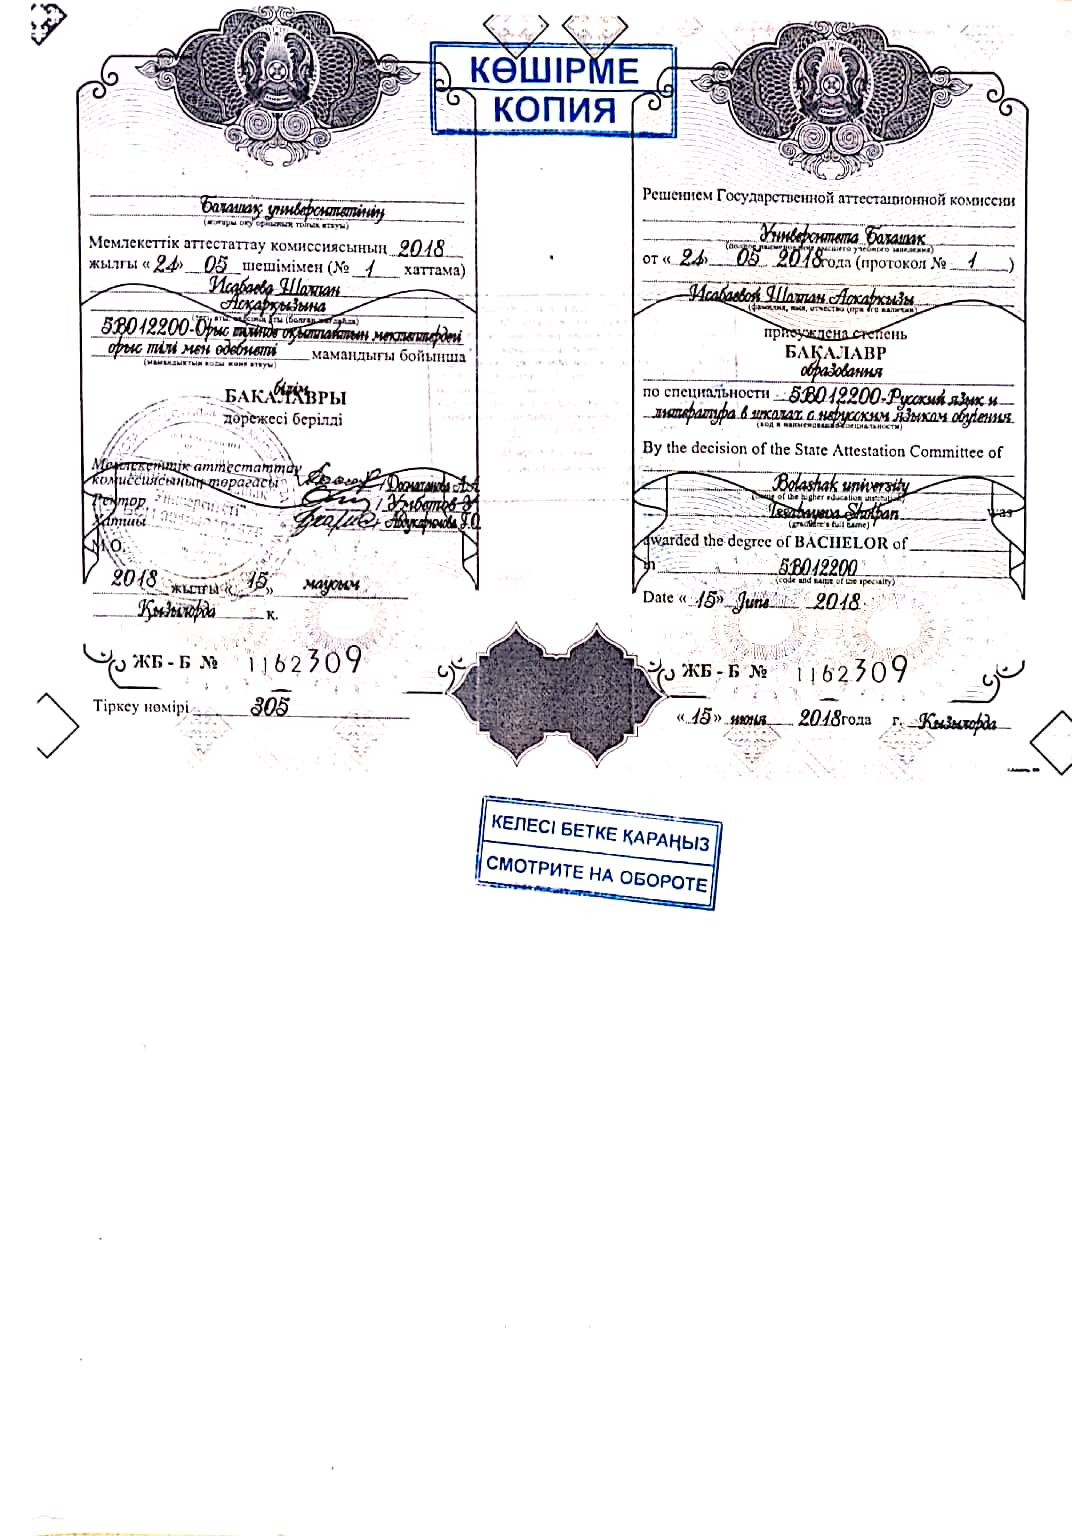 КӨШІРМЕ
КОПИЯ
Болашақ университетінің
(жоғары оқу орнының толық атауы)
Мемлекеттік аттестаттау комиссиясының 2018
жылғы «24» 05 шешімімен (№ 1 хаттама)
Исабаева Шолпан
Асқарқызына
5В012200-Орыс тілінде оқытпайтын мектептердегі
орыс тілі мен әдебиеті мамандығы бойынша
(мамандықтың коды және атауы)
білім
БАКАЛАВРЫ
дәрежесі берілді
Мемлекеттік аттестаттау
комиссиясының төрағасы
Ректор
Хатшы
М.О.
2018 жылғы «15» маусым
Қызылорда қ.
ЖБ - Б № 1162309
Тіркеу нөмірі 305
Решением Государственной аттестационной комиссии
Университета Болашак
(полное наименование высшего учебного заведения)
от «24» 05 2018года (протокол № 1)
Исабаевой Шолпан Аскаркызы
(фамилия, имя, отчество (при его наличии)
присуждена степень
БАКАЛАВР
образования
по специальности 5В012200-Русский язык и
литература в школах с нерусским языком обучения
(код и наименование специальности)
By the decision of the State Attestation Committee of
Bolashak university
(name of the higher education institution)
Issabayeva Sholpan was
(graduate's full name)
awarded the degree of BACHELOR of
in 5В012200
(code and name of the specialty)
Date «15» June 2018
ЖБ - Б № 1162309
«15» июня 2018года г. Кызылорда
КЕЛЕСІ БЕТКЕ ҚАРАҢЫЗ
СМОТРИТЕ НА ОБОРОТЕ